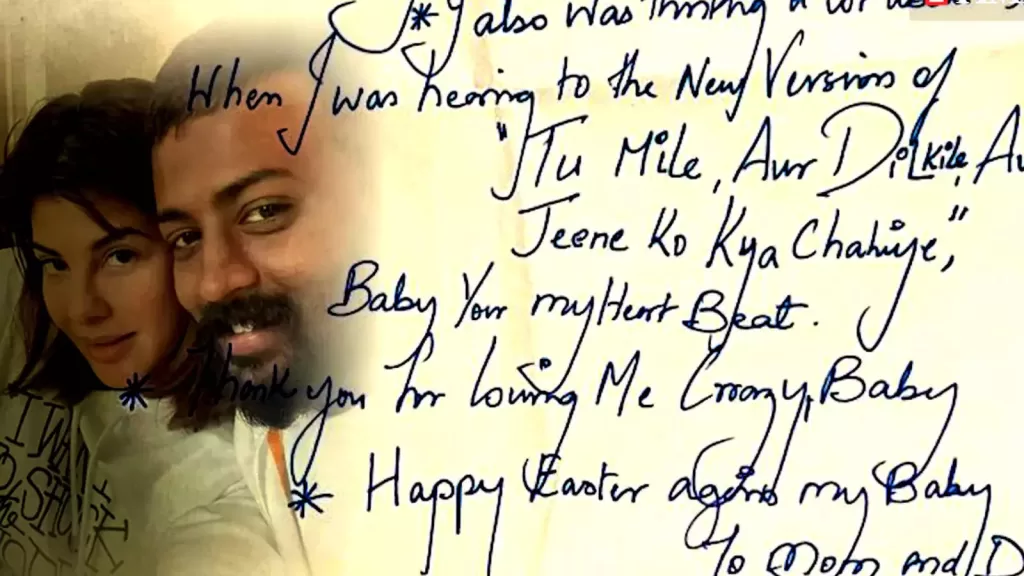 * I also was thinking a lot about
When I was hearing to the New Version of
"Tu Mile, Aur Dil Kile, Au
Jeene Ko Kya Chahiye,"
Baby Your my Heart Beat.
* Thank you for loving Me Crazy, Baby
* Happy Easter again my Baby
To Mom and D
I WA